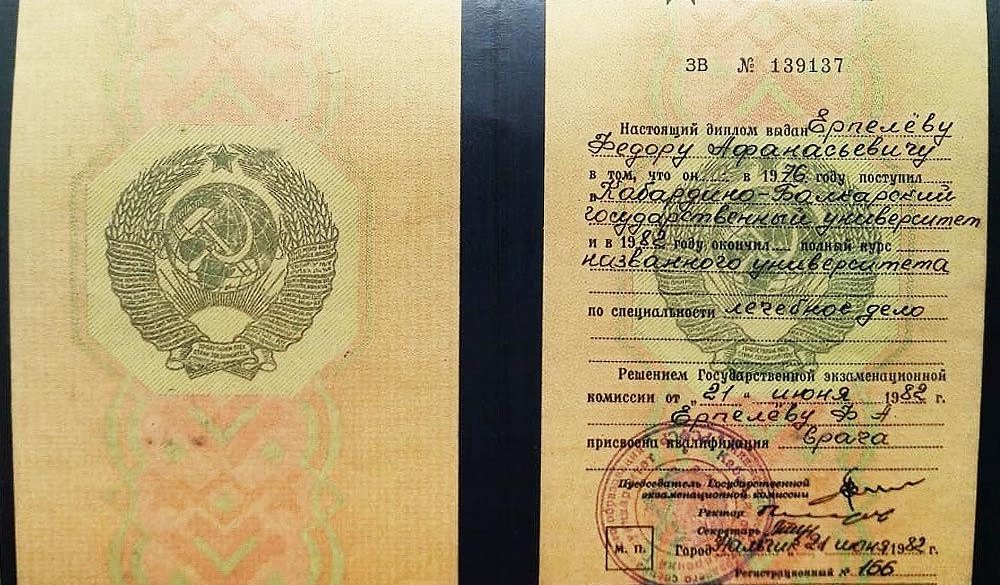 ЗВ № 139137
Настоящий диплом выдан Ерпелёву
Федору Афанасьевичу
в том, что он в 1976 году поступил
в Кабардино-Балкарский
государственный университет
и в 1982 году окончил полный курс
названного университета
по специальности лечебное дело
Решением Государственной экзаменационной
комиссии от „21“ июня 1982 г.
Ерпелёву Ф А
присвоена квалификация врача
Председатель Государственной
экзаменационной комиссии
Ректор
Секретарь
М. П.
Город Нальчик 21 июня 1982 г.
Регистрационный № 166